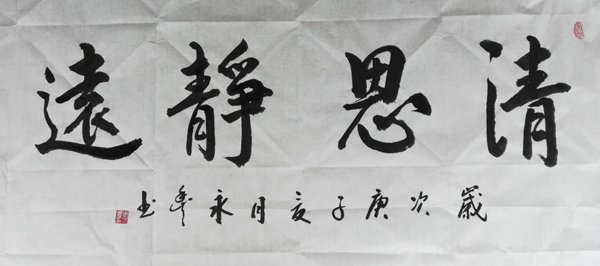 清思靜遠
歲次庚子夏月永年书